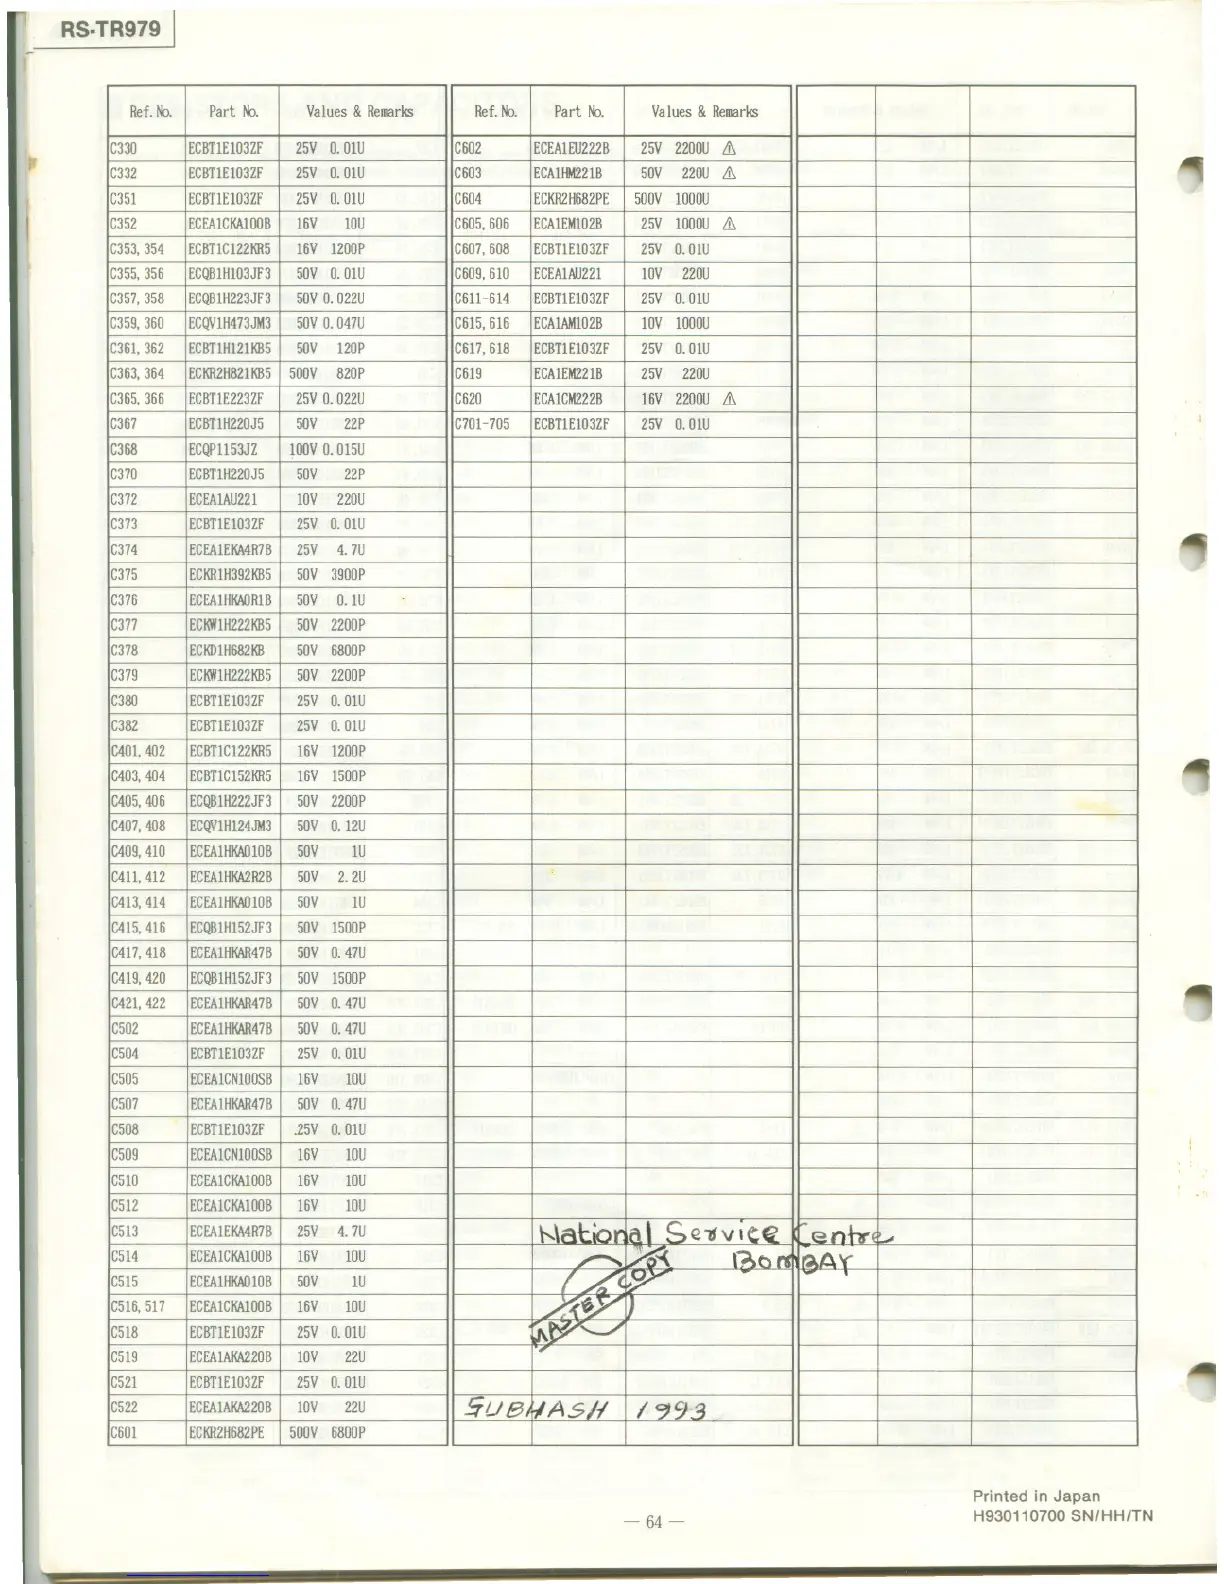 RS-TR979
Ref. No. Part No. Values & Remarks Ref. No. Part No. Values & Remarks
C330 ECBT1E103ZF 25V 0.01U C602 ECEA1EU222B 25V 2200U ⚠
C332 ECBT1E103ZF 25V 0.01U C603 ECA1HM221B 50V 220U ⚠
C351 ECBT1E103ZF 25V 0.01U C604 ECKR2H682PE 500V 1000U
C352 ECEA1CKA100B 16V 10U C605, 606 ECA1EM102B 25V 1000U ⚠
C353, 354 ECBT1C122KR5 16V 1200P C607, 608 ECBT1E103ZF 25V 0.01U
C355, 356 ECQB1H103JF3 50V 0.01U C609, 610 ECEA1AU221 10V 220U
C357, 358 ECQB1H223JF3 50V 0.022U C611-614 ECBT1E103ZF 25V 0.01U
C359, 360 ECQV1H473JM3 50V 0.047U C615, 616 ECA1AM102B 10V 1000U
C361, 362 ECBT1H121KB5 50V 120P C617, 618 ECBT1E103ZF 25V 0.01U
C363, 364 ECKR2H821KB5 500V 820P C619 ECA1EM221B 25V 220U
C365, 366 ECBT1E223ZF 25V 0.022U C620 ECA1CM222B 16V 2200U ⚠
C367 ECBT1H220J5 50V 22P C701-705 ECBT1E103ZF 25V 0.01U
C368 ECQP1153JZ 100V 0.015U
C370 ECBT1H220J5 50V 22P
C372 ECEA1AU221 10V 220U
C373 ECBT1E103ZF 25V 0.01U
C374 ECEA1EKA4R7B 25V 4.7U
C375 ECKR1H392KB5 50V 3900P
C376 ECEA1HKA0R1B 50V 0.1U
C377 ECKW1H222KB5 50V 2200P
C378 ECKD1H682KB 50V 6800P
C379 ECKW1H222KB5 50V 2200P
C380 ECBT1E103ZF 25V 0.01U
C382 ECBT1E103ZF 25V 0.01U
C401, 402 ECBT1C122KR5 16V 1200P
C403, 404 ECBT1C152KR5 16V 1500P
C405, 406 ECQB1H222JF3 50V 2200P
C407, 408 ECQV1H124JM3 50V 0.12U
C409, 410 ECEA1HKA010B 50V 1U
C411, 412 ECEA1HKA2R2B 50V 2.2U
C413, 414 ECEA1HKA010B 50V 1U
C415, 416 ECQB1H152JF3 50V 1500P
C417, 418 ECEA1HKAR47B 50V 0.47U
C419, 420 ECQB1H152JF3 50V 1500P
C421, 422 ECEA1HKAR47B 50V 0.47U
C502 ECEA1HKAR47B 50V 0.47U
C504 ECBT1E103ZF 25V 0.01U
C505 ECEA1CN100SB 16V 10U
C507 ECEA1HKAR47B 50V 0.47U
C508 ECBT1E103ZF .25V 0.01U
C509 ECEA1CN100SB 16V 10U
C510 ECEA1CKA100B 16V 10U
C512 ECEA1CKA100B 16V 10U
C513 ECEA1EKA4R7B 25V 4.7U National Service Centre
C514 ECEA1CKA100B 16V 10U BOMBAY
C515 ECEA1HKA010B 50V 1U
C516, 517 ECEA1CKA100B 16V 10U MASTER COPY
C518 ECBT1E103ZF 25V 0.01U
C519 ECEA1AKA220B 10V 22U
C521 ECBT1E103ZF 25V 0.01U
C522 ECEA1AKA220B 10V 22U SUBHASH 1993
C601 ECKR2H682PE 500V 6800P
Printed in Japan
H930110700 SN/HH/TN
— 64 —